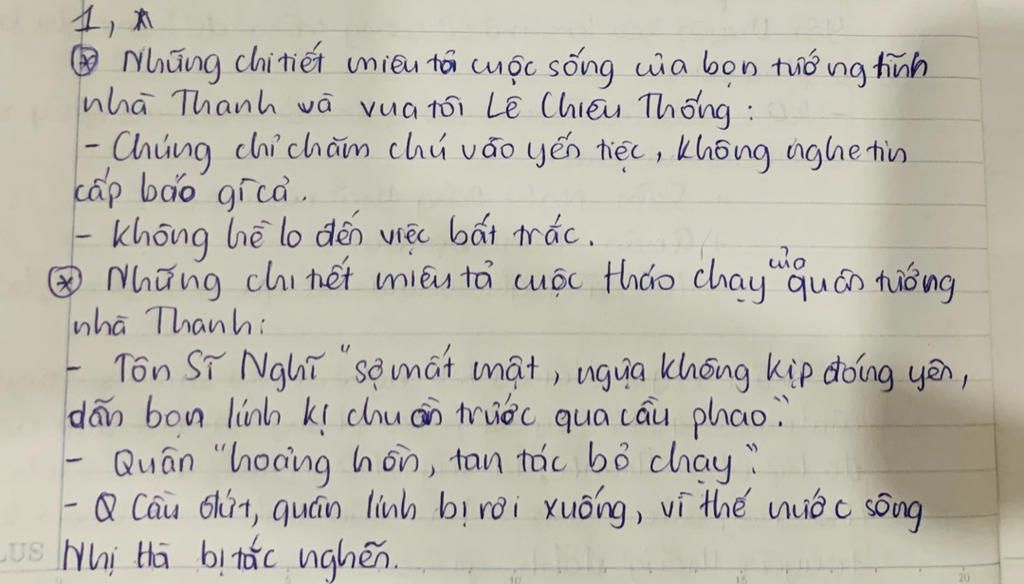 1, *
* Những chi tiết miêu tả cuộc sống của bọn tướng lĩnh
nhà Thanh và vua tôi Lê Chiêu Thống :
- Chúng chỉ chăm chú vào yến tiệc, không nghe tin
cấp báo gì cả.
- Không hề lo đến việc bất trắc.
* Những chi tiết miêu tả cuộc tháo chạy của quân tướng
nhà Thanh:
- Tôn Sĩ Nghĩ "sợ mất mật, ngựa không kịp đóng yên,
dẫn bọn lính kị chuồn trước qua cầu phao".
- Quân "hoảng hồn, tan tác bỏ chạy".
- Q Cầu đứt, quân lính bị rơi xuống, vì thế nước sông
Nhị Hà bị tắc nghẽn.
LUS